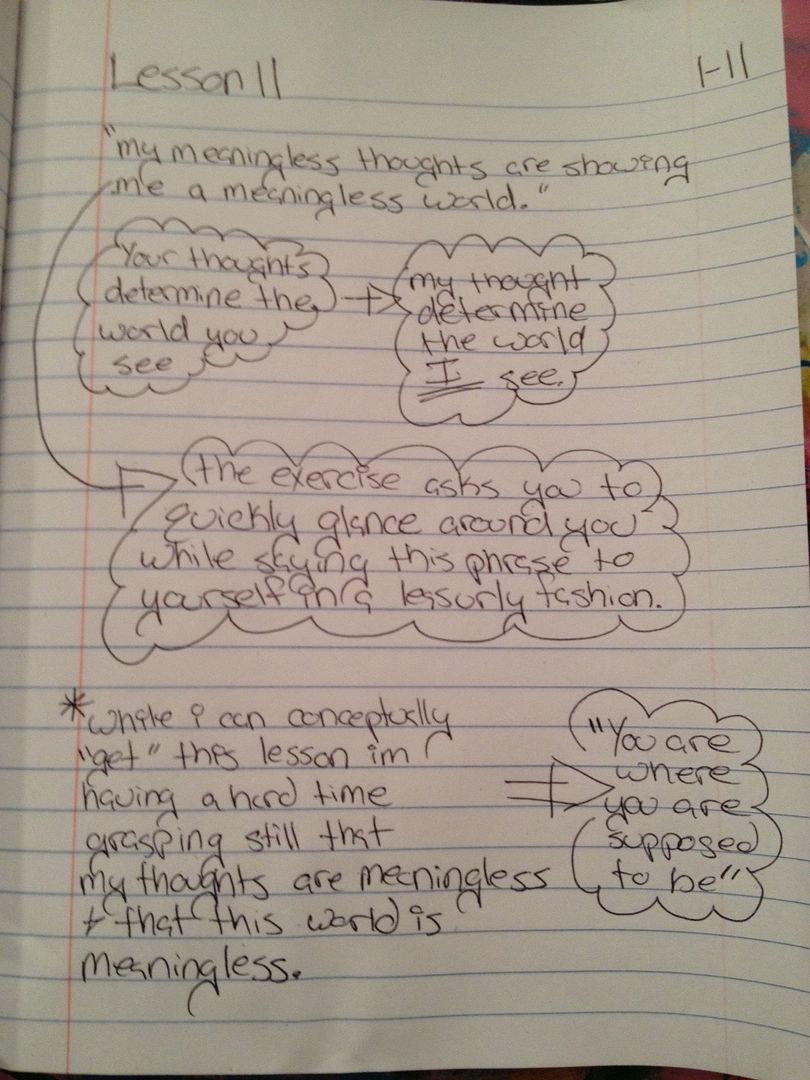 Lesson 11
1-11
"my meaningless thoughts are showing
me a meaningless world."
Your thoughts
determine the
world you
see
my thought
determine
the world
I see.
the exercise asks you to
quickly glance around you
while saying this phrase to
yourself in a leasurly fashion.
*while i can conceptually
"get" this lesson im
having a hard time
grasping still that
my thoughts are meaningless
+ that this world is
meaningless.
"You are
where
you are
supposed
to be"